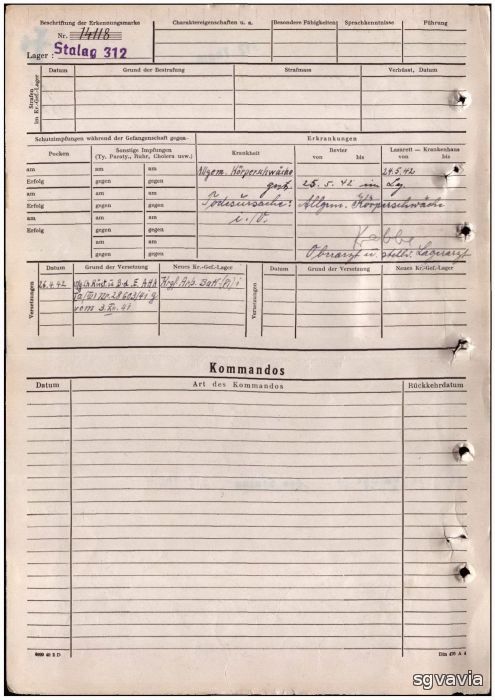 Beschriftung der Erkennungsmarke
Nr. 14118
Lager: Stalag 312
Charaktereigenschaften u. a.
Besondere Fähigkeiten
Sprachkenntnisse
Führung
Strafen im Kr.-Gef.-Lager
Datum
Grund der Bestrafung
Strafmass
Verbüsst, Datum
Schutzimpfungen während der Gefangenschaft gegen
Erkrankungen
Pocken
Sonstige Impfungen
(Ty. Paraty., Ruhr, Cholera usw.)
Krankheit
Revier
von bis
Lazarett — Krankenhaus
von bis
am
am
am
Erfolg
gegen
gegen
am
am
am
Erfolg
gegen
gegen
am
am
am
Erfolg
gegen
gegen
am
am
gegen
gegen
Allgem. Körperschwäche
24.5.42
gest. 25.5.42 im Lag.
Todesursache: Allgem. Körperschwäche
i./V.
Oberarzt u. stellv. Lagerarzt
Versetzungen
Datum
Grund der Versetzung
Neues Kr.-Gef.-Lager
Versetzungen
Datum
Grund der Versetzung
Neues Kr.-Gef.-Lager
26.4.42
vom 3.
Kommandos
Datum
Art des Kommandos
Rückkehrdatum
Din 476 A 4
sgvavia